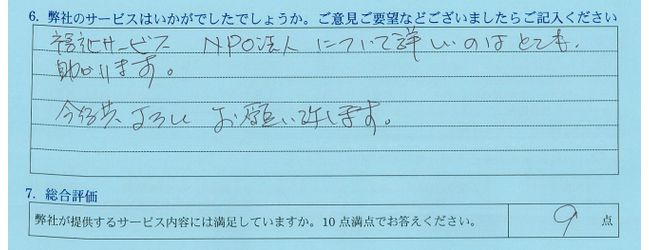 6. 弊社のサービスはいかがでしたでしょうか。ご意見ご要望などございましたらご記入ください
福祉サービス NPO法人 について詳しいのはとても、
助かります。
今後共、よろしく お願い致します。
7. 総合評価
弊社が提供するサービス内容には満足していますか。10点満点でお答えください。 9 点